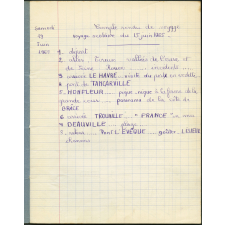 Samedi
Compte rendu de voyage
19
voyage scolaire du 15 juin
Juin
1. départ
2. aller vallée de l'Eure et
de la Seine
3. arrivée LE HAVRE visite du port en vedette
4. pont de TANCARVILLE
5. HONFLEUR pique-nique à la ferme de la
grande cour panorama de la côte de
GRÂCE
6. arrivée TROUVILLE "FRANCE" en mer
7. DEAUVILLE plage
8. retour Pont L'EVEQUE goûter LISIEUX